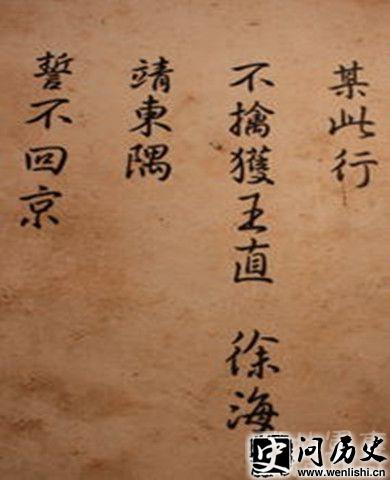 某此行
不擒獲王直 徐海
靖東隅
誓不回京
史问历史
www.wenlishi.cn